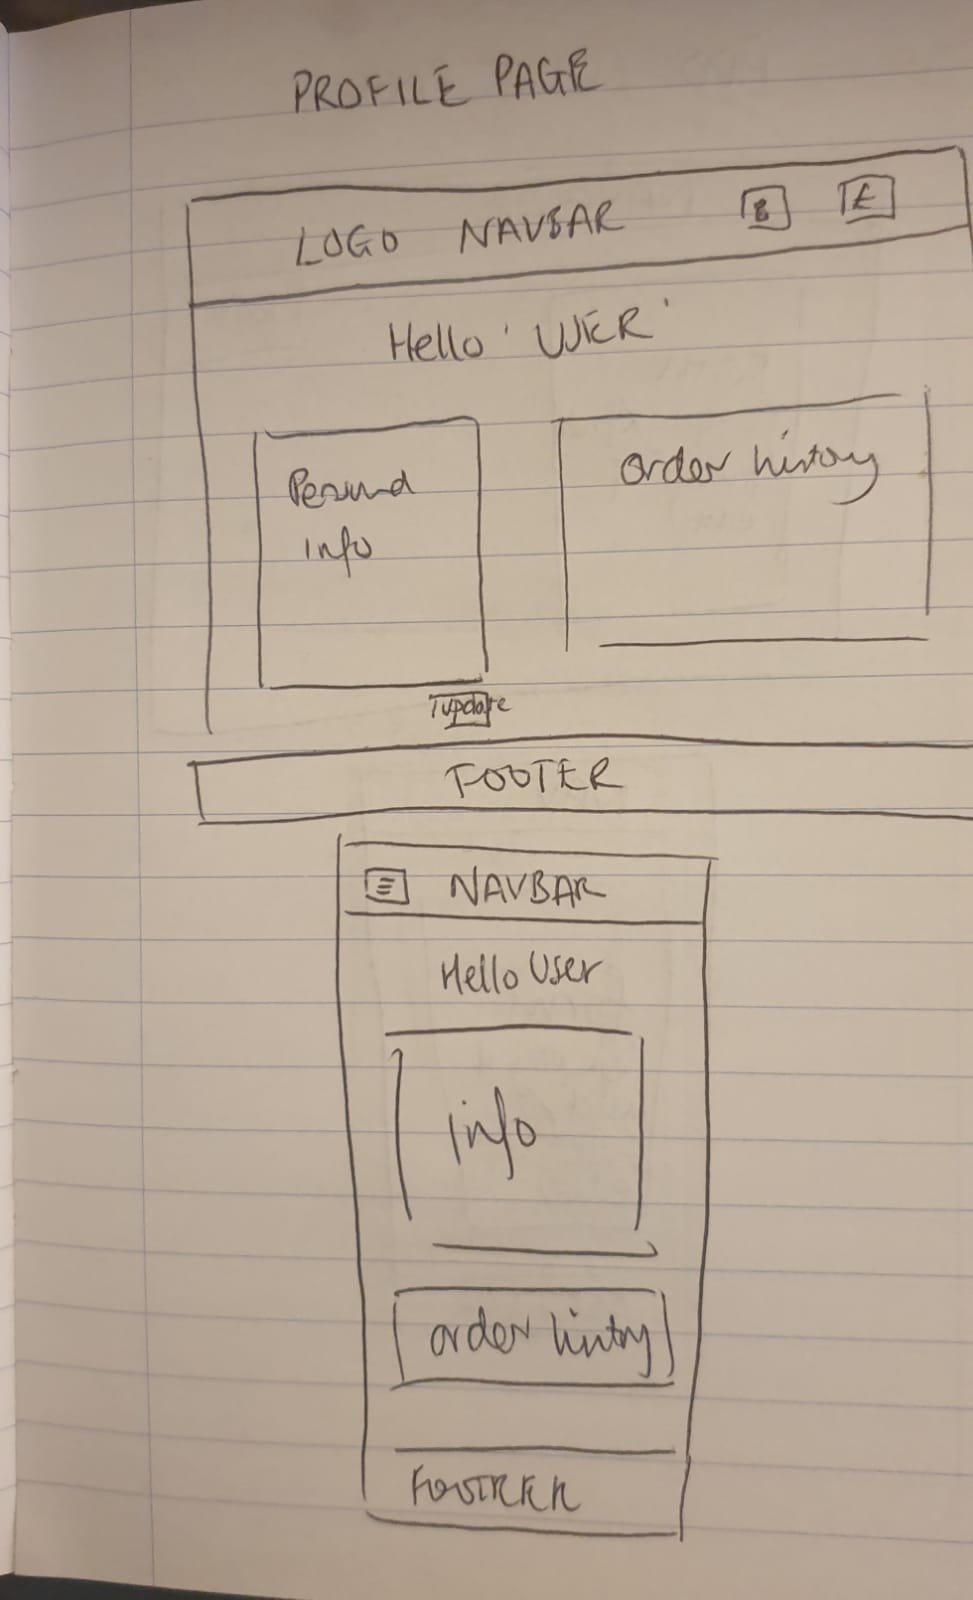 PROFILE PAGE
LOGO NAVBAR
Hello 'USER'
Personal
info
order history
update
FOOTER
NAVBAR
Hello User
info
order history
FOOTER